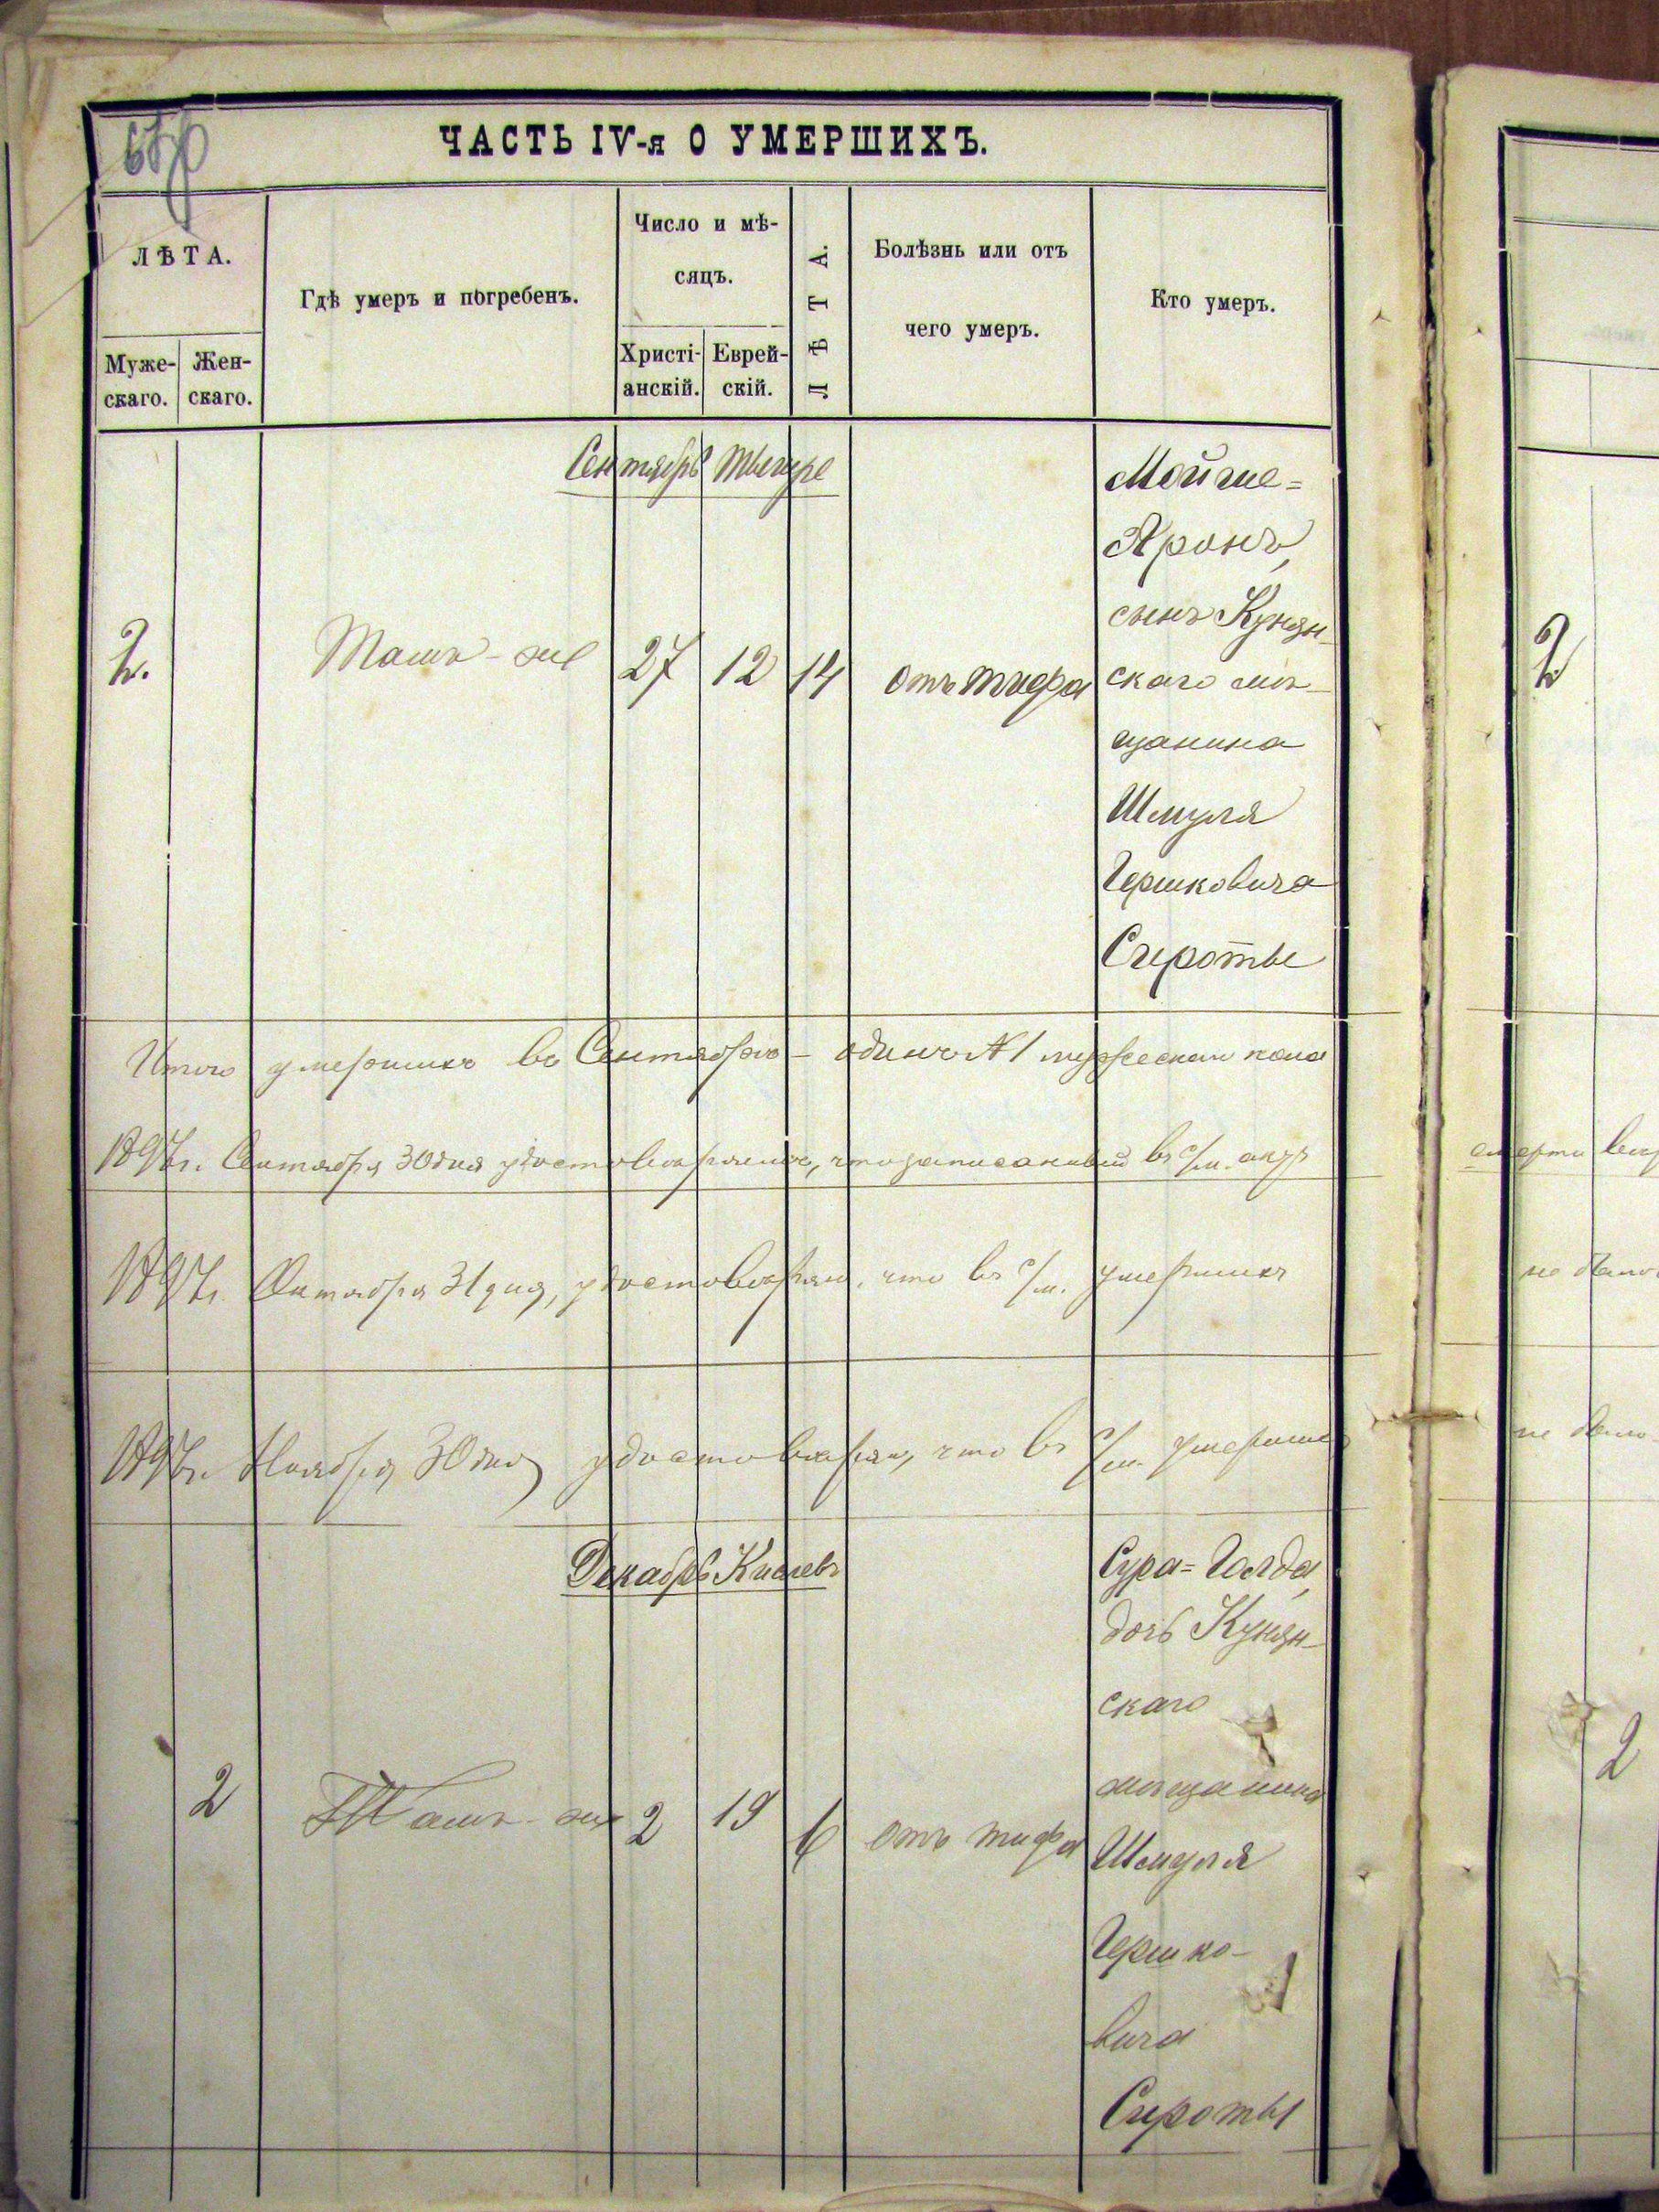 ЧАСТЬ IV-я О УМЕРШИХЪ.
ЛѢТА.
Муже-
скаго.
Жен-
скаго.
Гдѣ умеръ и погребенъ.
Число и мѣ-
сяцъ.
Христі-
анскій.
Еврей-
скій.
ЛѢТА.
Болѣзнь или отъ
чего умеръ.
Кто умеръ.
Сентябрь Тишре
2.
Тамъ-же
27
12
14
отъ тифа
Мойше=
Аронъ,
сынъ Кунян
скаго мѣ-
щанина
Шмуля
Гершковича
Сироты
Итого умершихъ въ Сентябрѣ - одинъ № 1 мужескаго пола
1897 г. Сентября 30 дня удостовѣряемъ, что записанный въ с/м. актъ
смерти
1897 г. Октября 31 дня, удостовѣряю, что въ с/м. умершихъ
не было
1897 г. Ноября 30 дня удостовѣряю, что въ с/м. умерших
не было
Декабрь Кислевъ
2
Тамъ-же
2
19
6
отъ тифа
Сура=Голда,
дочь Кунян-
скаго
мѣщанина
Шмуля
Гершко-
вича
Сироты
2
2